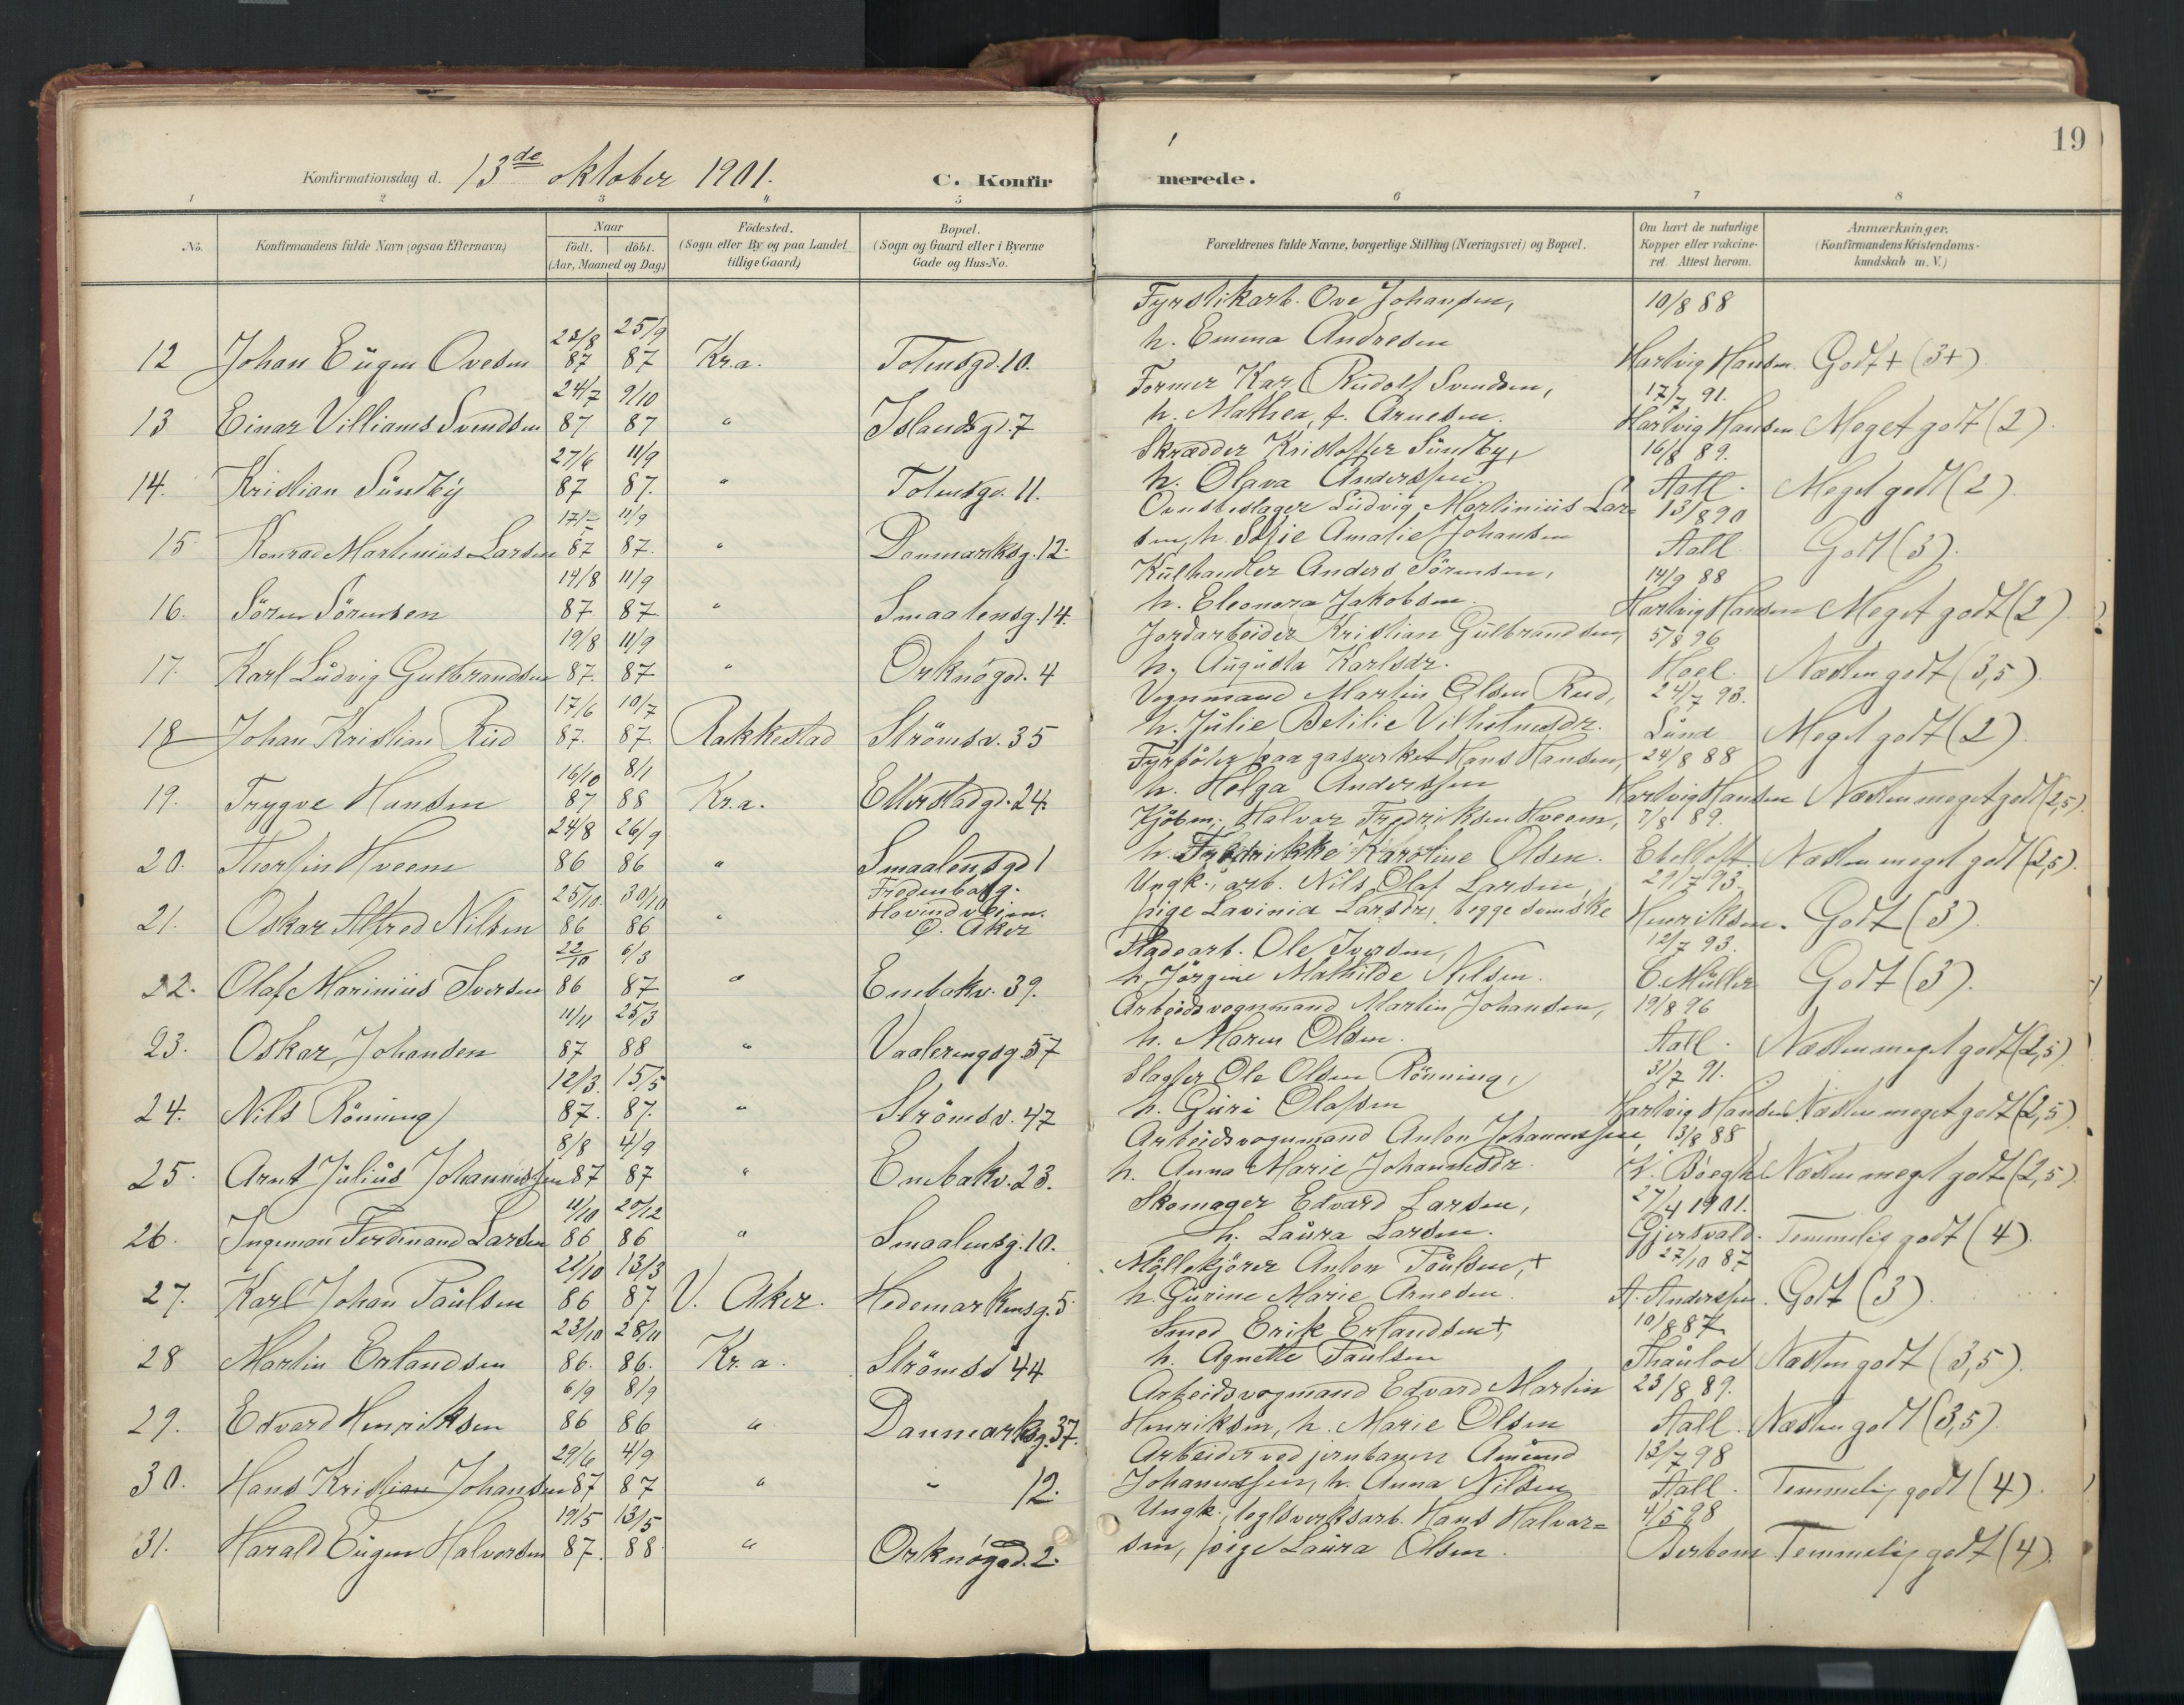 19
Konfirmationsdag d. 13de oktober 1901. C. Konfir merede.
1 2 3 4 5 6 7 8
No. Konfirmandens fulde Navn (ogsaa Efternavn) Naar födt. döbt. (Aar, Maaned og Dag) Födested. (Sogn eller By og paa Landet tillige Gaard) Bopæl. (Sogn og Gaard eller i Byerne Gade og Hus-No. Forældrenes fulde Navne, borgerlige Stilling (Næringsvei) og Bopæl. Om havt de naturlige Kopper eller vakcineret Attest herom. Anmærkninger. (Konfirmandens Kristendomskundskab m. V.)
Fyrstikarb. Ove Johansen, 10/8 88
28/8 25/9 h. Emma Andresen
12 Johan Eugen Ovesen 87 87 Kr.a. Totensgd. 10. Hartvig Hansen. Godt + (3+)
24/7 9/10 Former Kar. Rudolf Svendsen, 17/7 91.
13 Einar Villiams Svendsen 87 87 " Islandsgd. 7 h. Mathea, f. Arnesen. Hartvig Hansen Meget godt (2).
27/6 11/9 Skrædder Kristoffer Sundby, 16/8 89.
14. Kristian Sundby 87 87. " Totensgd. 11. h. Olava Anderssen. Aall. Meget godt (2)
17/ 11/9 Ludvig Martinius Lar= 13/8 90
15 Konrad Martinius Larsen 87 87. " Danmarksg. 12. sen, h. Sofie Amalie Johansen Aall Godt (3).
14/8 11/9 Kulhandler Anders Sörensen, 14/9 88
16. Sören Sörensen 87 87. " Smaalensg. 14. h. Eleonora Jakobsen. Hartvig Hansen Meget godt (2)
19/8 11/9 Jordarbeider Kristian Gulbrandsen, 5/8 96
17. Karl Ludvig Gulbrandsen 87. 87 " Orknögd. 4 h. Augusta Karlsdr. Hoel. Næsten godt (3,5)
17/6 10/7 Vognmand Martin Olsen Rud, 24/7 93.
18 Johan Kristian Rud 87. 87. Rakkestad Strömsv. 35 h. Julie Vilhelmsdr. Lund Meget godt (2)
16/10 8/1 Fyrböter paa gasverket Hans Hansen, 24/8 88
19. Trygve Hansen 87 88 Kr.a. Ellerstadgd. 24. h. Helga Anderssen Hartvig Hansen Næsten meget godt (2,5).
24/8 26/9 Kjöbm. Halvor Fredriksen Hveem, 7/8 89.
20. Thorfin Hveem 86 86 " Smaalensgd 1 h. Fredrikke Karoline Olsen. Ebeltoft. Næsten meget godt (2,5).
25/10. 30/10 Fredenborg. Ungk., arb. Nils Olaf Larsen, 29/7 93.
21. Oskar Alfred Nilsen 86 86 " Hovindveien. Ö. Aker pige Lavinia Larsdr, begge svenske Henriksen. Godt (3).
22/10 6/3 Ole Iversen, 12/7 93.
22. Olaf Marinius Iversen 86 87 " Enebakv. 39. h. Jörgine Mathilde Nilsen. C. Müller Godt (3).
11/11 25/3 Arbeidsvognmand Martin Johansen, 19/8 96
23. Oskar Johansen 87 88 " Vaaleringsg. 57 h. Maren Olsen. Aall. Næsten meget godt (2,5).
12/3. 15/5 Slagter Ole Olsen Rönning, 31/7 91.
24. Nils Rönning 87. 87. " Strömsv. 47 h. Guri Olafsen Hartvig Hansen Næsten meget godt (2,5)
8/8 4/9 Arbeidsvognmand Anton Johannessen, 13/8 88
25. Arnt Julius Johannessen 87 87 " Enebakv. 23. h. Anna Marie Johannesdr. Næsten meget godt (2,5)
11/10 20/12 Skomager Edvard Larsen, 27/4 1901.
26. Ingeman Ferdinand Larsen 86 86 " Smaalensg. 10. h. Laura Larsen. Gjersvald. Temmelig godt (4)
21/10 13/3 Möllekjörer Anton Paulsen, + 27/10 87
27. Karl Johan Paulsen 86 87 V. Aker. Hedemarkensg. 5. h. Gurine Marie Arnesen. A. Anderssen. Godt (3)
23/10 28/11 Smed Erik Erlandsen +, 10/8 87
28 Martin Erlandsen 86. 86. Kr.a. Strömsv 44 h. Agnette Paulsen Thaulow Næsten godt (3,5).
6/9 8/9 Arbeidsvogmand Edvard Martin 23/8 89.
29. Edvard Henriksen 86 86 " Danmarksg. 37. Henriksen, h. Marie Olsen Aall. Næsten godt (3,5)
29/6 4/9 Arbeider ved jernbanen Amund 13/7 98
30. Hans Kristian Johansen 87 87 " " 12. Johannessen, h. Anna Nilsen Aall. Temmelig godt (4)
19/5 13/5 Ungk., teglsverksarb. Hans Halvor= 4/5 98
31. Harald Eugen Halvorsen 87. 88 " Orknögad. 2. sen, pige Laura Olsen. Temmelig godt (4).